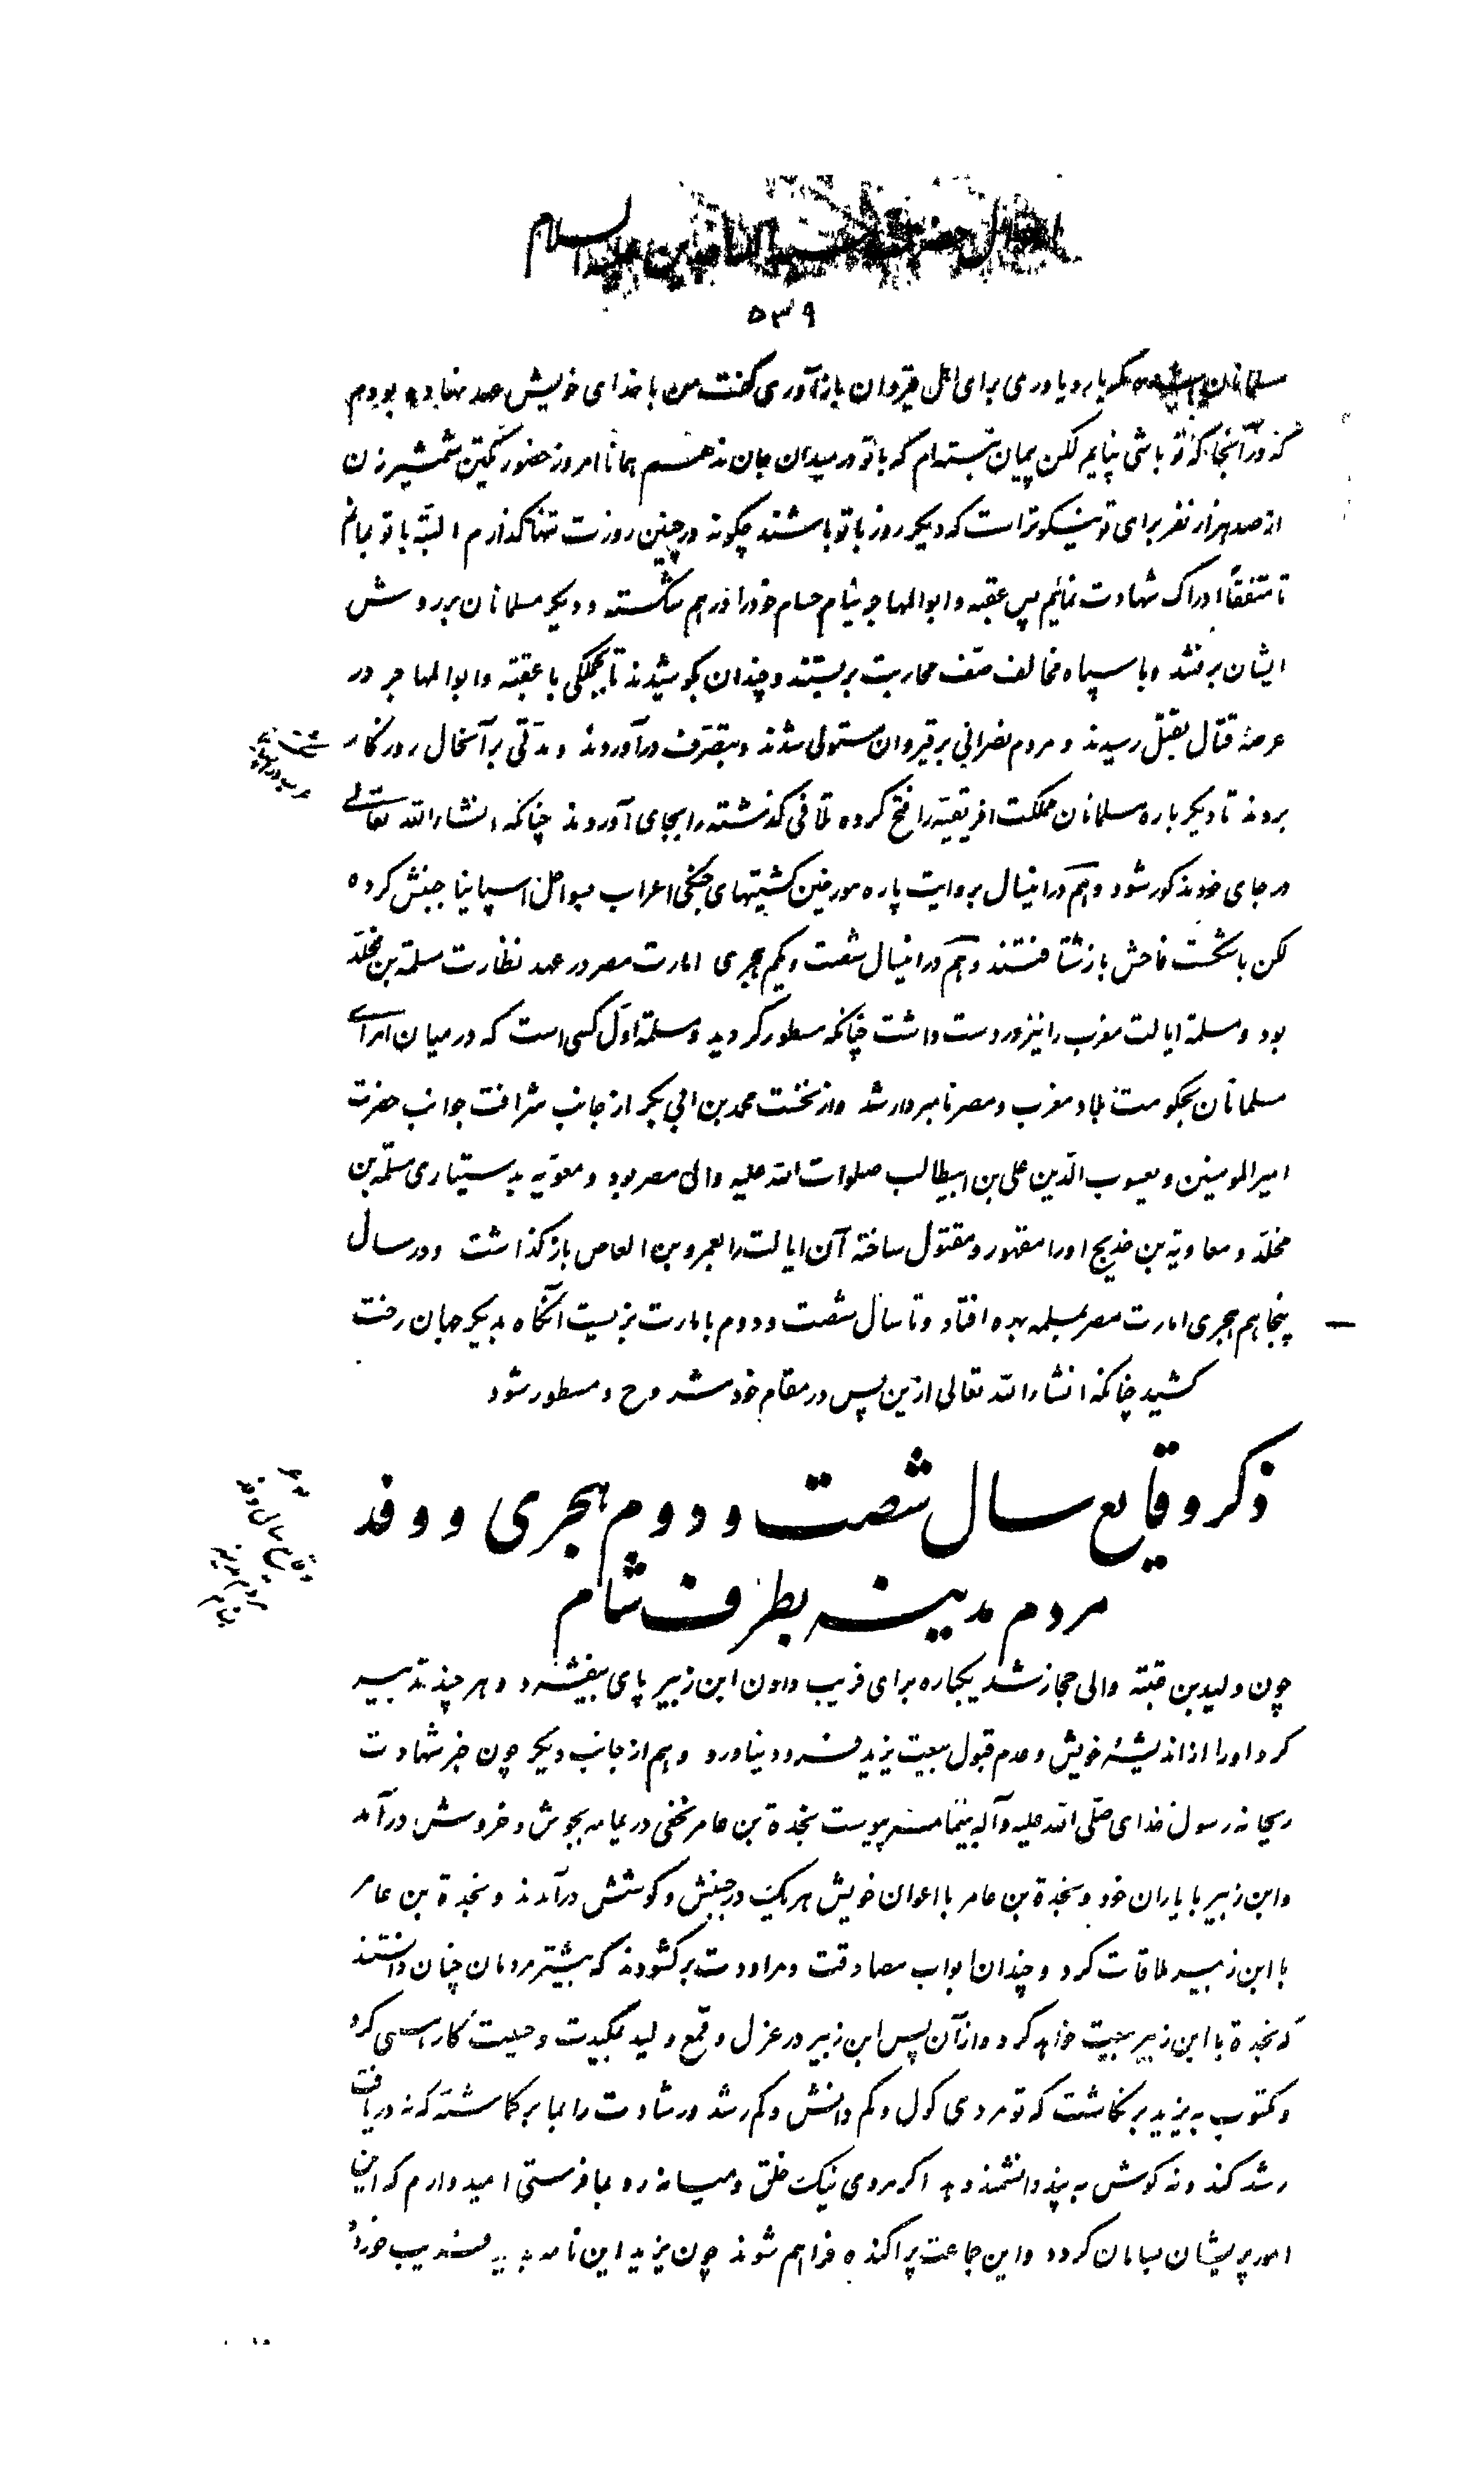 احوال حضرت سید الساجدین علیه السلام
۵۳۹
مسلمانان دیگر باره یاوری برای اهل قیروان بازآوری گفت من با خدای خویش عهد نهاده بودم
که در آنجا که تو باشی نیایم لکن پیمان نبسته‌ام که با تو در میدان جان ندهم همانا امروز حضور یکتن شمشیرزن
از صد هزار نفر برای تو نیکوتر است که دیگر روز با تو باشند چگونه در چنین روزت تنها گذارم البته با تو بمانم
تا متفقاً ادراک شهادت نمائیم پس عقبه و ابوالمهاجر نیام حسام خود را در هم شکسته و دیگر مسلمانان بر روش
ایشان برفتند و با سپاه مخالف صف محاربت بربستند و چندان بکوشیدند تا بجملگی با عقبة و ابوالمهاجر در
عرصهٔ قتال بقتل رسیدند و مردم نصرانی بر قیروان مستولی شدند و بتصرف درآوردند و مدتی بر آنحال روزگار
بردند تا دیگر باره مسلمانان مملکت افریقیه را فتح کرده تلافی گذشته را بجای آوردند چنانکه انشاءالله تعالی
در جای خود مذکور شود و هم در اینسال بروایت پاره مورخین کشتیهای جنگی اعراب بسواحل اسپانیا جنبش کرده
لکن با شکست فاحش بازشتافتند و هم در اینسال شصت و یکم هجری امارت مصر در عهد نظارت مسلمة بن مخلد
بود و مسلمة ایالت مغرب را نیز در دست داشت چنانکه مسطور گردید و مسلمة اول کسی است که در میان امرای
مسلمانان بحکومت بلاد مغرب و مصر نامبردار شد و از نخست محمد بن ابی بکر از جانب شرافت جوانب حضرت
امیرالمومنین و یعسوب الدین علی بن ابیطالب صلوات الله علیه والی مصر بود و معویه بدستیاری مسلمة بن
مخلد و معاویة بن خدیج او را مقهور و مقتول ساخته آن ایالت را بعمرو بن العاص بازگذاشت و در سال
پنجاهم هجری امارت مصر بمسلمه بهره افتاد و تا سال شصت و دوم بامارت بزیست آنگاه بدیگر جهان رخت
کشید چنانکه انشاءالله تعالی ازین پس در مقام خود مشروح و مسطور شود
ذکر وقایع سال شصت و دوم هجری و وفد
مردم مدینه بطرف شام
چون ولید بن عتبة والی حجاز شد یکباره برای فریب دادن ابن زبیر پای بیفشرد و هر چند تدبیر
کرد او را از اندیشهٔ خویش و عدم قبول بیعت یزید فرود نیاورد و هم از جانب دیگر چون خبر شهادت
ریحانه رسول خدای صلی الله علیه و آله بیمامه پیوست نجدة بن عامر نخفی در یمامه بجوش و خروش درآمد
و ابن زبیر با یاران خود و نجدة بن عامر با اعوان خویش هر یک در جنبش و کوشش درآمدند و نجدة بن عامر
با ابن زبیر ملاقات کرد و چندان ابواب مصادقت و مراودت برگشودند که بیشتر مردمان چنان دانستند
که نجدة با ابن زبیر بیعت خواهد کرد و از آن پس ابن زبیر در عزل و قمع ولید بمکیدت و حیلت کار همی کرد
و مکتوب به یزید برنگاشت که تو مردی کول و کم دانش و کم رشد و رشادت را بما برگماشته که نه دریافت
رشد کند و نه گوش به پند دانشمند دهد اگر مردی نیک خلق و میانه رو بما فرستی امیدوارم که این
امور پریشان بسامان گردد و این جماعت پراکنده فراهم شوند چون یزید این نامه بدید فریب خورد